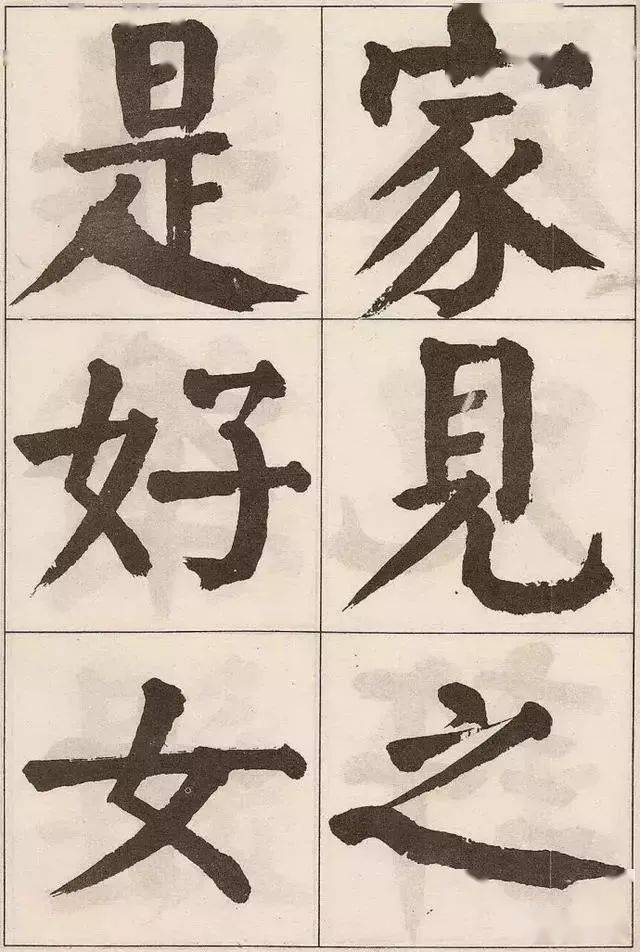 家見之
是好女